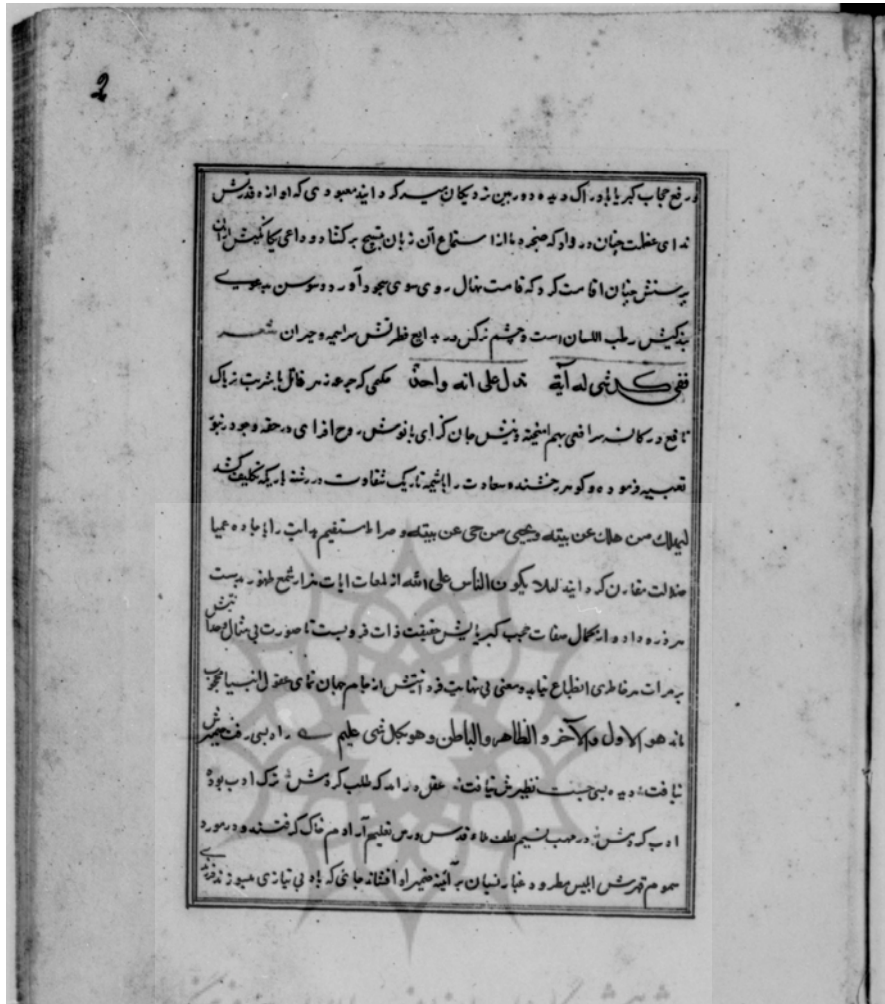 2
و رفع حجاب کبریا با دراک دیده دوربین نزدیکان سیه کردانید معبودی که اوازه قدرتش
ندای عظمت چنان در داد که صنجره بااز استماع آن زبان بتسبیح برکشاد و داعی یکانکیش
پرستش چنان اقامت کرد که قامت نهال روی سوی سجود آورد و سوسن
بذکرش رطب اللسان است و چشم نرکس در بدایع فطرتش سراسیمه و حیران شعر
ففی کل شی له آیة تدل علی انه واحد حکمی که جرعه زهر قاتل با شربت تریاک
نافع در کاسه سرافعی بهم امیخته و نیش جان کزای با نوش روح افزای در حقه وجود زنبور
تعبیه فرموده و کوهر رخشنده سعادت را با شبه تاریک شقاوت در رشته باریک تکلیف کشد
لیهلک من هلک عن بینة و یحیی من حی عن بینة و صراط مستقیم هدایت را با جاده عمیا
ضلالت مقارن کردانید لئلا یکون للناس علی الله از لمعات ایات هزار شمع ظهور بدست
هر ذره داد و از کمال صفات حجب کبریایش حقیقت ذات فروبست تا صورت بی مثال
بر مرات هر خاطری انطباع نیابد و معنی بی نهایت فردانیتش از جام جهان نمای عقول انبیا محجوب
ماند هو الاول و الآخر و الظاهر و الباطن و هو بکل شی علیم راد بسی رفت ضمیرش
نیافت دیده بسی جست نظیرش نیافت عقل درامد که طلب کردمش ترک ادب بود
ادب کردمش در مهب نسیم لطف قدس درس تعلیم آدم خاک کرفتند و در مورد
سموم قهرش ابلیس مطرود غبار نسیان بر آئینه ضمیر او افشاند جائی که باد بی نیازی